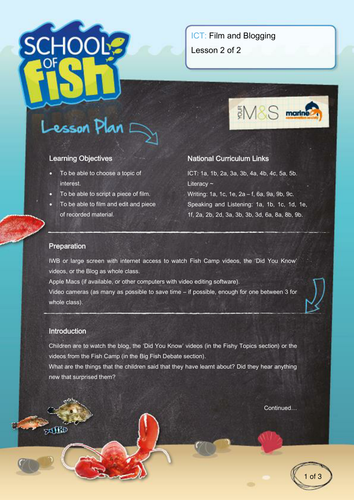 SCHOOL
OF
fish
ICT: Film and Blogging
Lesson 2 of 2
YOUR M&S
marine
Lesson Plan
Learning Objectives
• To be able to choose a topic of
interest.
• To be able to script a piece of film.
• To be able to film and edit and piece
of recorded material.
National Curriculum Links
ICT: 1a, 1b, 2a, 3a, 3b, 4a, 4b, 4c, 5a, 5b.
Literacy ~
Writing: 1a, 1c, 1e, 2a – f, 6a, 9a, 9b, 9c.
Speaking and Listening: 1a, 1b, 1c, 1d, 1e,
1f, 2a, 2b, 2d, 3a, 3b, 3b, 3d, 6a, 8a, 8b, 9b.
Preparation
IWB or large screen with internet access to watch Fish Camp videos, the 'Did You Know'
videos, or the Blog as whole class.
Apple Macs (if available, or other computers with video editing software).
Video cameras (as many as possible to save time – if possible, enough for one between 3 for
whole class).
Introduction
Children are to watch the blog, the 'Did You Know' videos (in the Fishy Topics section) or the
videos from the Fish Camp (in the Big Fish Debate section).
What are the things that the children said that they have learnt about? Did they hear anything
new that surprised them?
Continued…
1 of 3